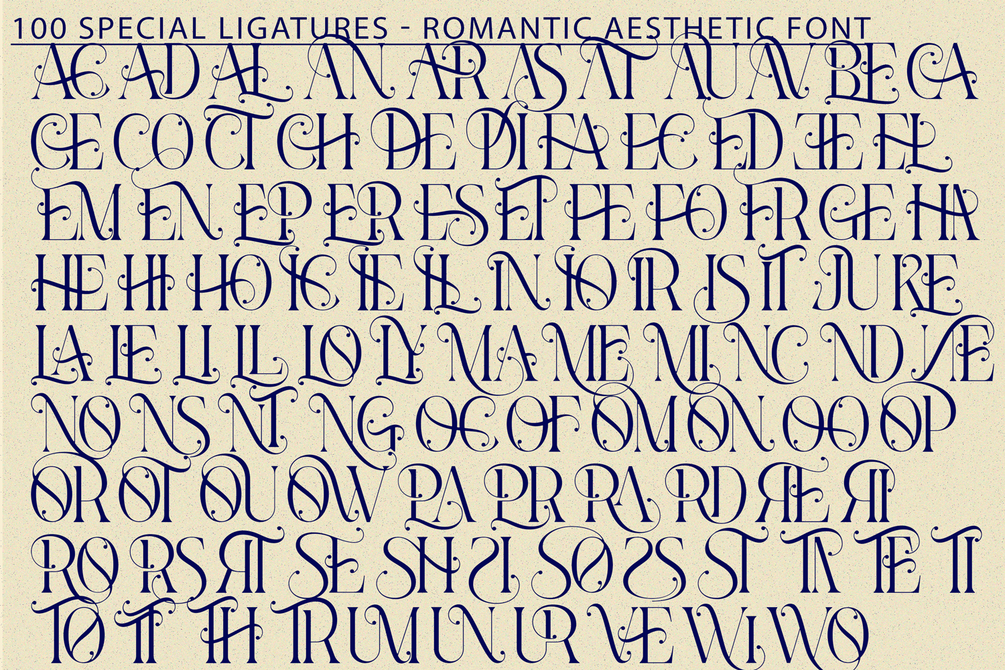 100 SPECIAL LIGATURES - ROMANTIC AESTHETIC FONT
AC AD AL AN AR AS AT AU AV BE CA
CE CO CT CH DE DI EA EC ED EE EL
EM EN EP ER ES ET FE FO FR GE HA
HE HI HO IC IE IL IN IO IR IS IT JU KE
LA LE LI LL LO LY MA ME MI NC ND NE
NO NS NT NG OC OF OM ON OO OP
OR OT OU OW PA PR RA RD RE RI
RO RS RT SE SH SI SO SS ST TA TE TI
TO TT TH TR UM UN UR VE WI WO